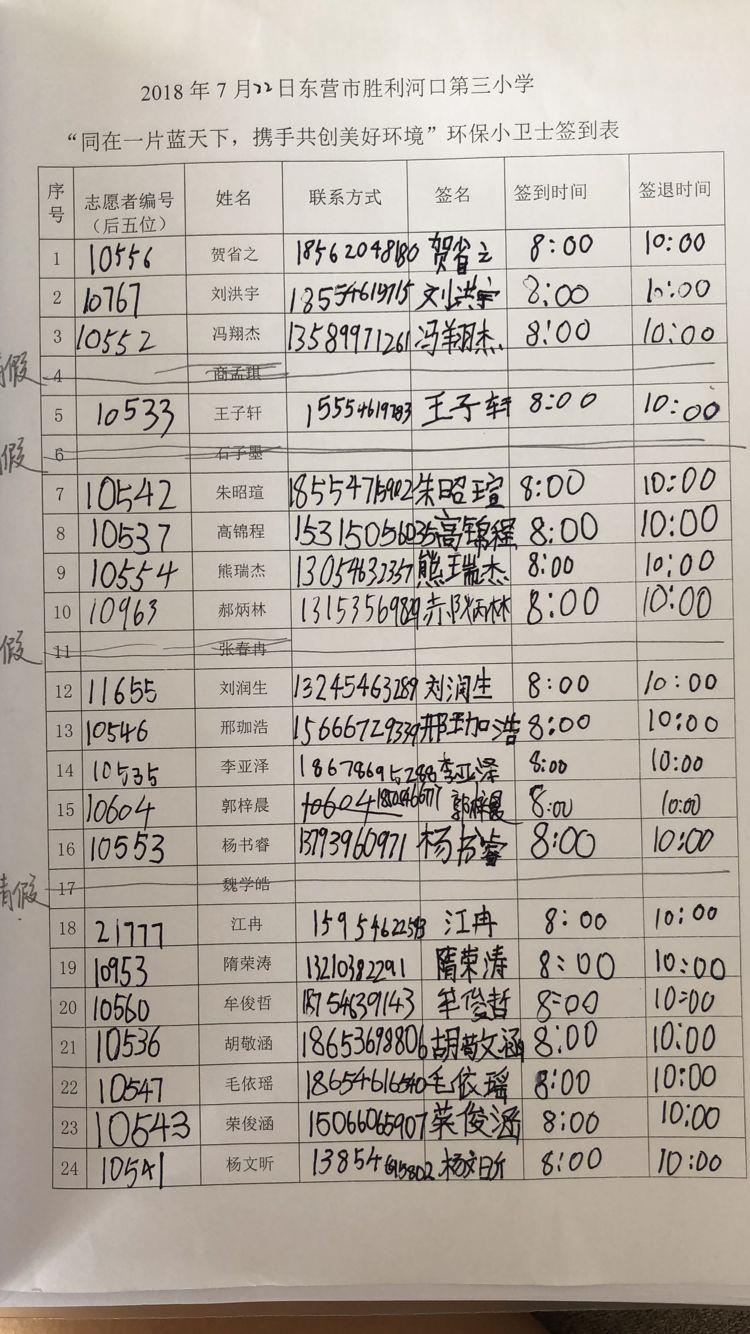 2018年7月22日东营市胜利河口第三小学
“同在一片蓝天下，携手共创美好环境”环保小卫士签到表
序号 志愿者编号（后五位） 姓名 联系方式 签名 签到时间 签退时间
1 10556 贺省之 18562048180 贺省之 8:00 10:00
2 10767 刘洪宇 18554613715 刘洪宇 8:00 10:00
3 10552 冯翔杰 13589971261 冯翔杰 8:00 10:00
请假 4 商孟琪
5 10533 王子轩 15554619783 王子轩 8:00 10:00
假 6 石子墨
7 10542 朱昭瑄 18554715902 朱昭瑄 8:00 10:00
8 10537 高锦程 15315056035 高锦程 8:00 10:00
9 10554 熊瑞杰 13054632357 熊瑞杰 8:00 10:00
10 10963 郝炳林 13153569829 郝炳林 8:00 10:00
假 11 张春冉
12 11655 刘润生 13245463289 刘润生 8:00 10:00
13 10546 邢珈浩 15666729339 邢珈浩 8:00 10:00
14 10535 李亚泽 18678695288 李亚泽 8:00 10:00
15 10604 郭梓晨 10604 郭梓晨 8:00 10:00
16 10553 杨书睿 13793960971 杨书睿 8:00 10:00
请假 17 魏学皓
18 21777 江冉 15954622593 江冉 8:00 10:00
19 10953 隋荣涛 13210382291 隋荣涛 8:00 10:00
20 10560 牟俊哲 18754639143 牟俊哲 8:00 10:00
21 10536 胡敬涵 18653698806 胡敬涵 8:00 10:00
22 10547 毛依瑶 18654616540 毛依瑶 8:00 10:00
23 10543 荣俊涵 15066065907 荣俊涵 8:00 10:00
24 10541 杨文昕 13854695802 杨文昕 8:00 10:00